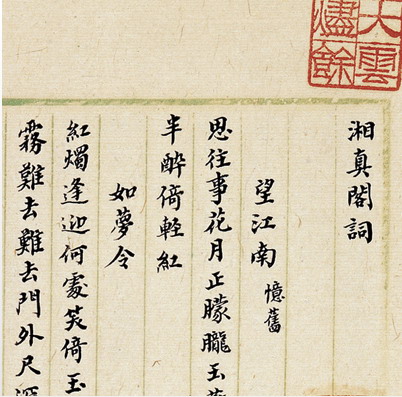 大雲燼餘
湘真閣詞
望江南 憶舊
思往事花月正朦朧玉
半醉倚輕紅
如夢令
紅燭逢迎何處笑倚玉
霧難去難去門外尺